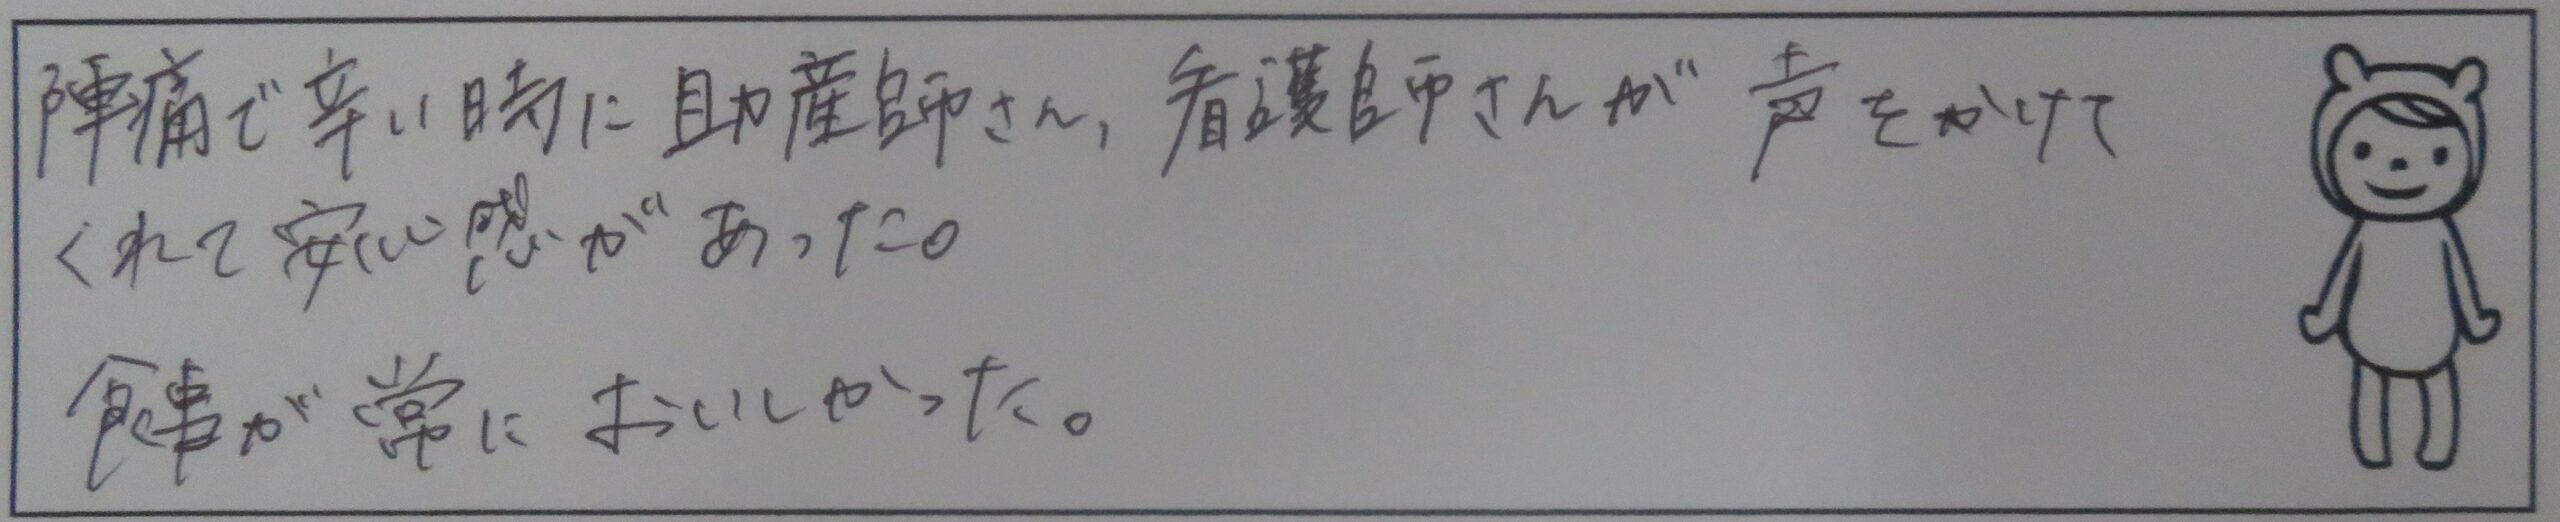 陣痛で辛い時に助産師さん,看護師さんが声をかけて
くれて安心感があった。
食事が常においしかった。